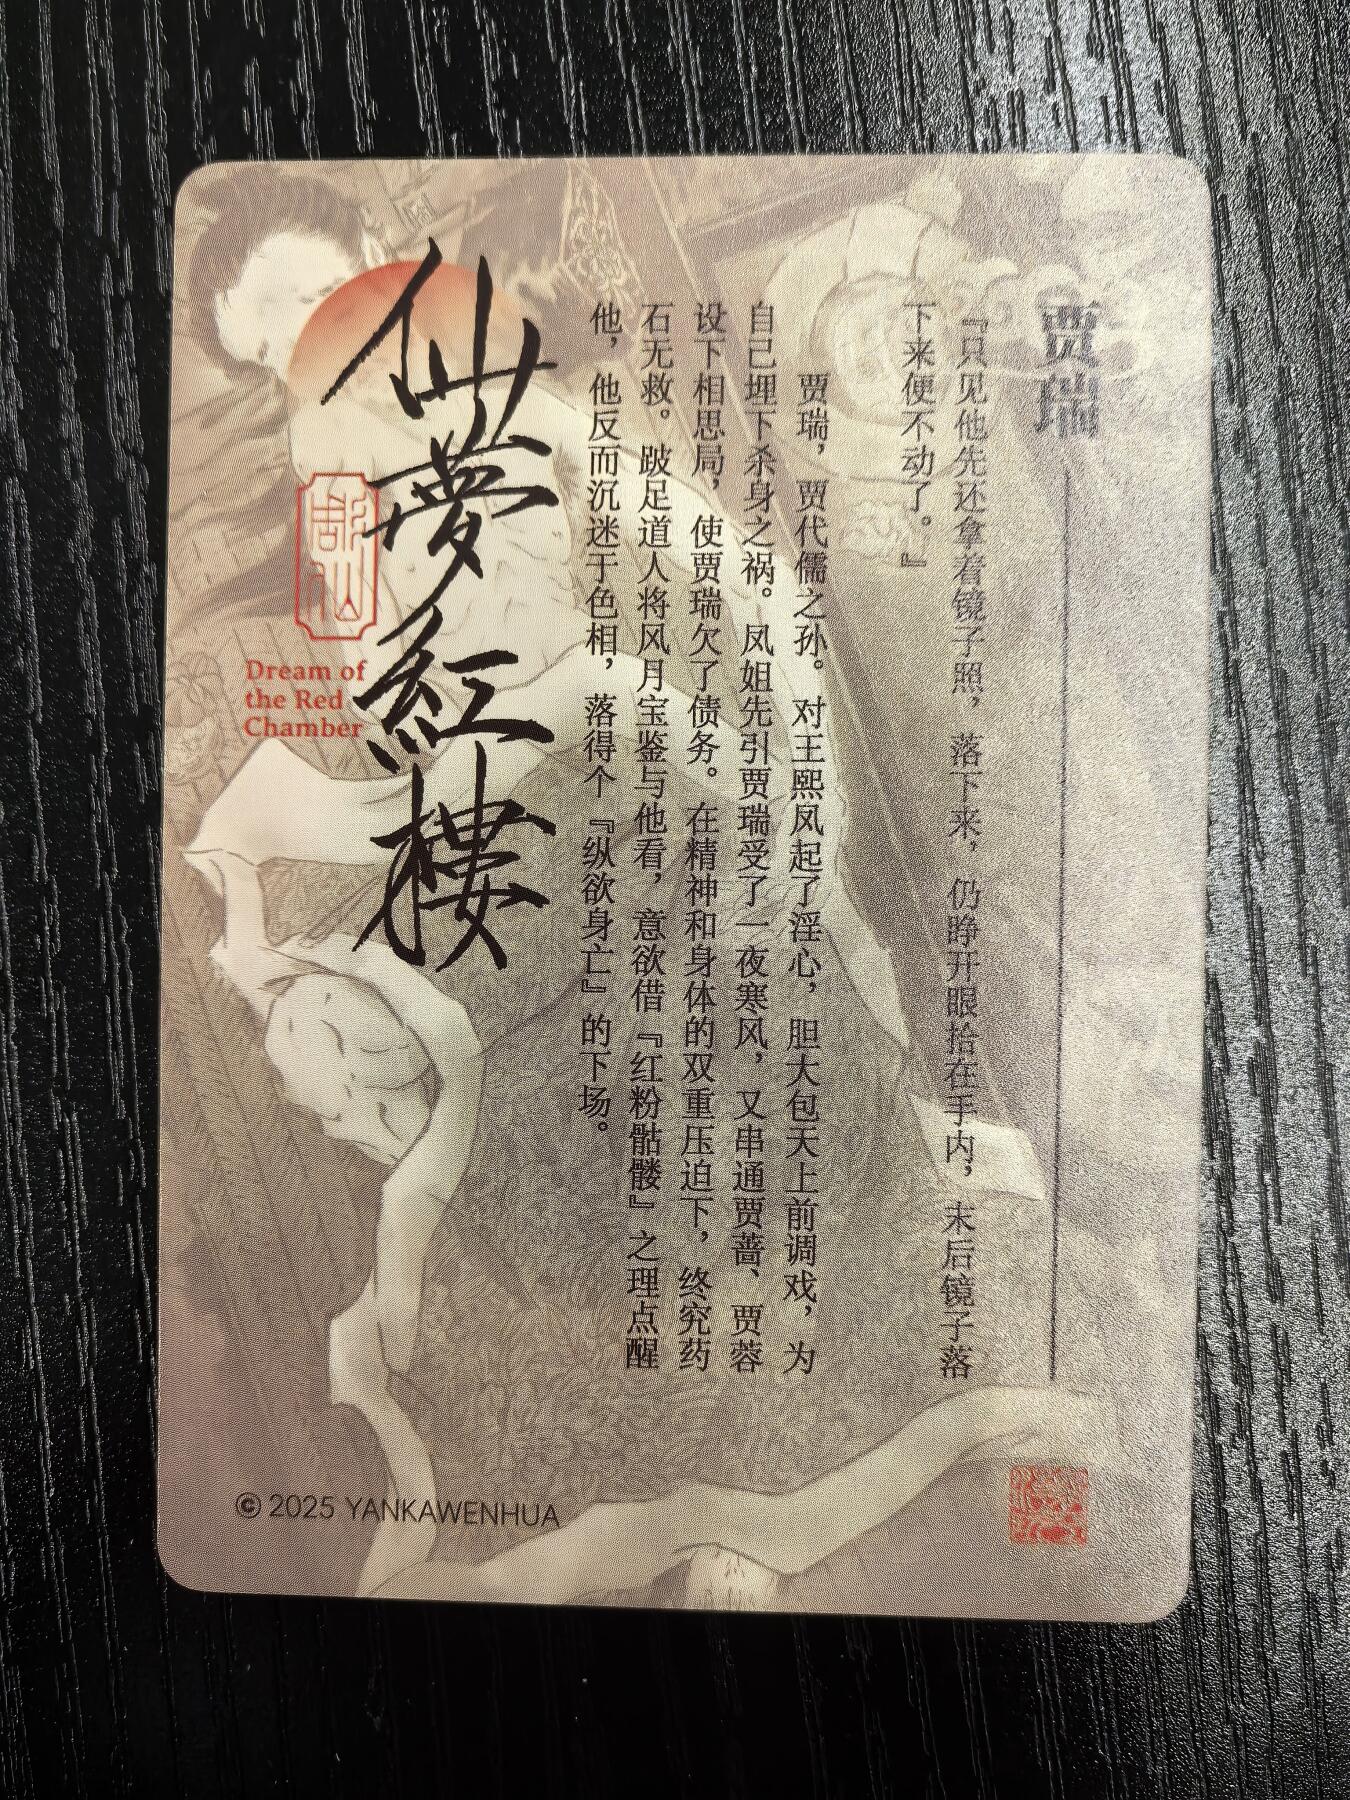 贾瑞
『只见他先还拿着镜子照，落下来，仍睁开眼拾在手内，末后镜子落
下来便不动了。』
贾瑞，贾代儒之孙。对王熙凤起了淫心，胆大包天上前调戏，为
自己埋下杀身之祸。凤姐先引贾瑞受了一夜寒风，又串通贾蔷、贾蓉
设下相思局，使贾瑞欠了债务。在精神和身体的双重压迫下，终究药
石无救。跛足道人将风月宝鉴与他看，意欲借『红粉骷髅』之理点醒
他，他反而沉迷于色相，落得个『纵欲身亡』的下场。
仙夢紅樓
Dream of
the Red
Chamber
© 2025 YANKAWENHUA